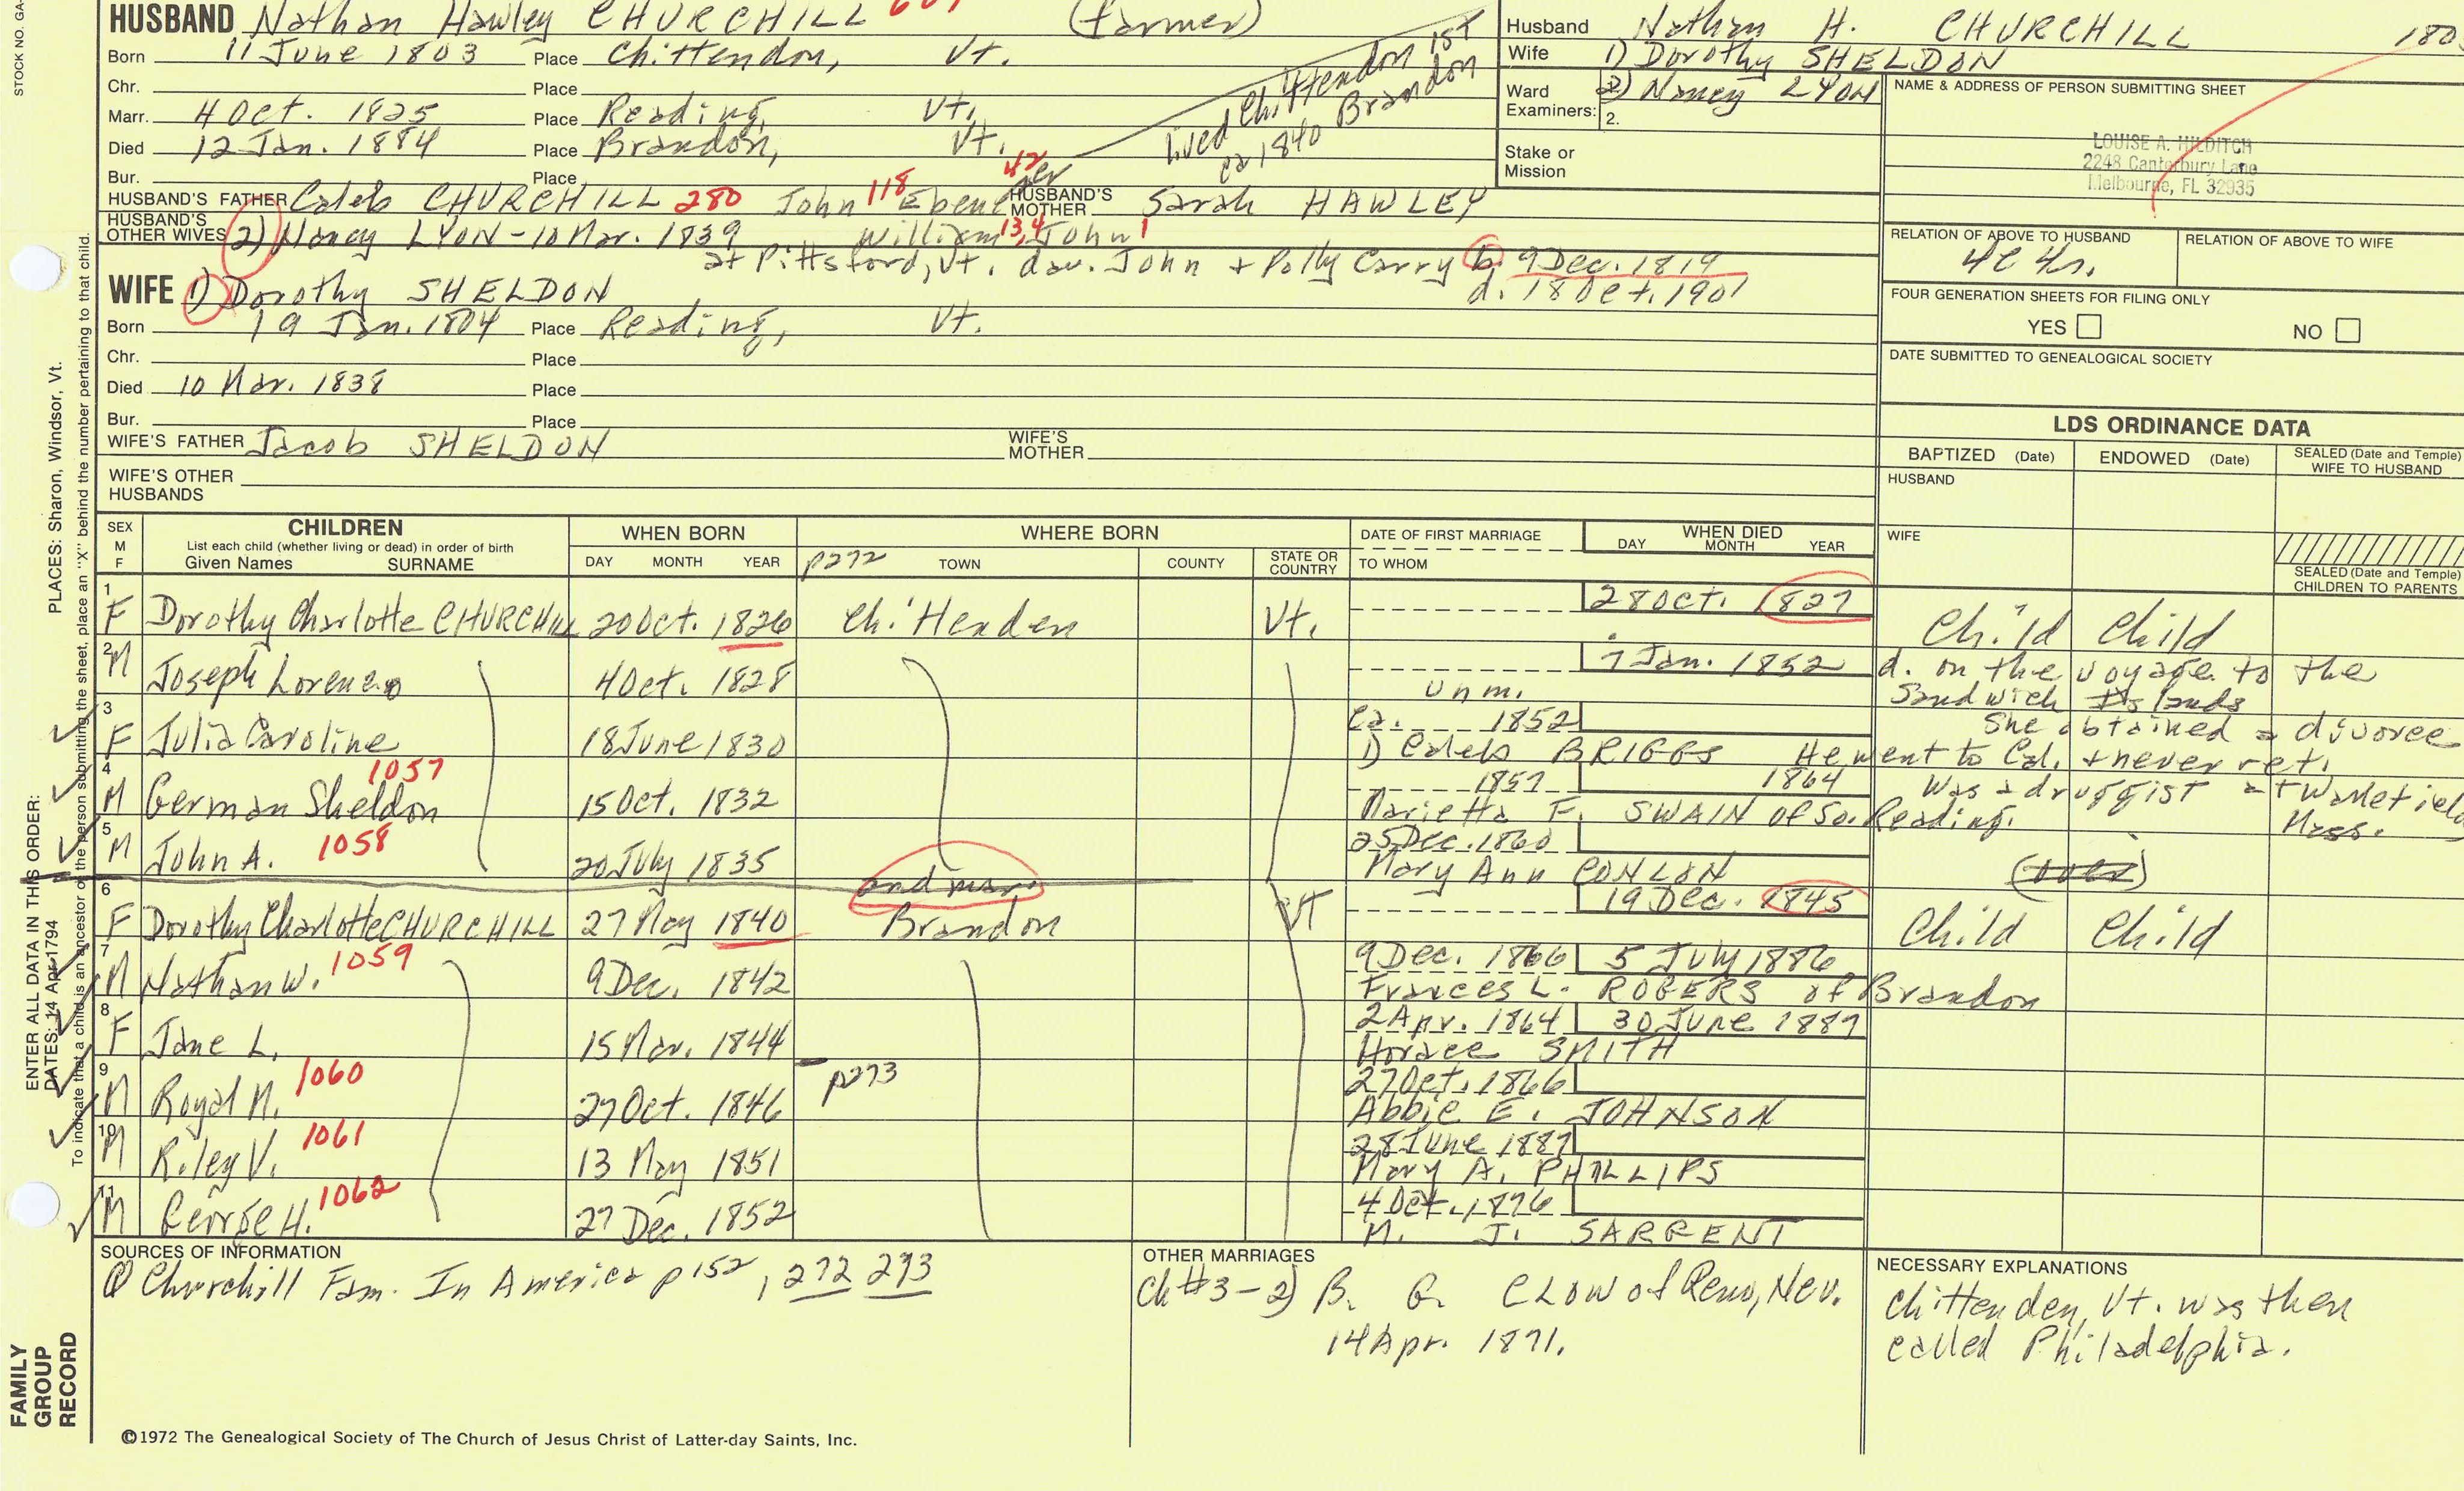 HUSBAND Nathan Hawley CHURCHILL (farmer)
Born 11 June 1803 Place Chittendon, Vt.
Chr. Place
Marr. 4 Oct. 1825 Place Reading, Vt.
Died 12 Jan. 1884 Place Brandon, Vt.
Bur. Place
lived Chittendon 1st
ca 1840 Brandon
HUSBAND'S FATHER Caleb CHURCHILL 280 John 118 Ebenezer 42 HUSBAND'S MOTHER Sarah HAWLEY
HUSBAND'S OTHER WIVES 2) Nancy LYON - 10 Mar. 1839 William 13,4 John 1
at Pittsford, Vt. dau. John + Polly Carry b. 9 Dec. 1819
d. 18 Oct. 1901
WIFE 1) Dorothy SHELDON
Born 19 Jan. 1804 Place Reading, Vt.
Chr. Place
Died 10 Mar. 1838 Place
Bur. Place
WIFE'S FATHER Jacob SHELDON WIFE'S MOTHER
WIFE'S OTHER HUSBANDS
Husband Nathan H. CHURCHILL 180
Wife 1) Dorothy SHELDON
Ward 2) Nancy LYON
Examiners: 2.
Stake or Mission
NAME & ADDRESS OF PERSON SUBMITTING SHEET
LOUISE A. HILDITCH
2248 Canterbury Lane
Melbourne, FL 32935
RELATION OF ABOVE TO HUSBAND RELATION OF ABOVE TO WIFE
4c 4r.
FOUR GENERATION SHEETS FOR FILING ONLY
YES NO
DATE SUBMITTED TO GENEALOGICAL SOCIETY
LDS ORDINANCE DATA
BAPTIZED (Date) ENDOWED (Date) SEALED (Date and Temple) WIFE TO HUSBAND
HUSBAND
WIFE
SEALED (Date and Temple) CHILDREN TO PARENTS
SEX M F CHILDREN WHEN BORN WHERE BORN DATE OF FIRST MARRIAGE WHEN DIED
List each child (whether living or dead) in order of birth
Given Names SURNAME DAY MONTH YEAR p272 TOWN COUNTY STATE OR COUNTRY TO WHOM DAY MONTH YEAR
1 F Dorothy Charlotte CHURCHILL 20 Oct. 1826 Chittenden Vt. 28 Oct. 1827 Child Child
2 M Joseph Lorenzo 4 Oct. 1828 Unm. 7 Jan. 1852 d. on the voyage to the
Sandwich Islands
3 F Julia Caroline 18 June 1830 ca. 1852 She obtained a divorce
1) Caleb BRIGGS He went to Cal. + never ret.
4 M German Sheldon 1057 15 Oct. 1832 1857 1864 Was a druggist at Wakefield
Marietta F. SWAIN of So. Reading. Mass.
5 M John A. 1058 20 July 1835 25 Dec. 1860
Mary Ann CONLON (over)
and mar.
6 F Dorothy Charlotte CHURCHILL 27 May 1840 Brandon Vt 19 Dec. 1845 Child Child
7 M Nathan W. 1059 9 Dec. 1842 9 Dec. 1866 5 July 1886
Frances L. ROGERS of Brandon
8 F Jane L. 15 Mar. 1844 2 Apr. 1864 30 June 1887
Horace SMITH
9 M Royal M. 1060 27 Oct. 1846 p273 27 Oct. 1866
Abbie E. JOHNSON
10 M Riley V. 1061 13 May 1851 28 June 1887
Mary A. PHILLIPS
11 M George H. 1062 27 Dec. 1852 4 Oct. 1876
M. J. SARGENT
SOURCES OF INFORMATION
① Churchill Fam. In America p 152, 272 273
OTHER MARRIAGES
Ch #3 - 2) B. G. CLOW of Reno, Nev.
14 Apr. 1871.
NECESSARY EXPLANATIONS
Chittenden, Vt. was then
called Philadelphia.
©1972 The Genealogical Society of The Church of Jesus Christ of Latter-day Saints, Inc.
STOCK NO. GA-
PLACES: Sharon, Windsor, Vt.
To indicate that a child is an ancestor of the person submitting the sheet, place an "X" behind the number pertaining to that child.
ENTER ALL DATA IN THIS ORDER:
DATES: 14 Apr 1794
FAMILY
GROUP
RECORD